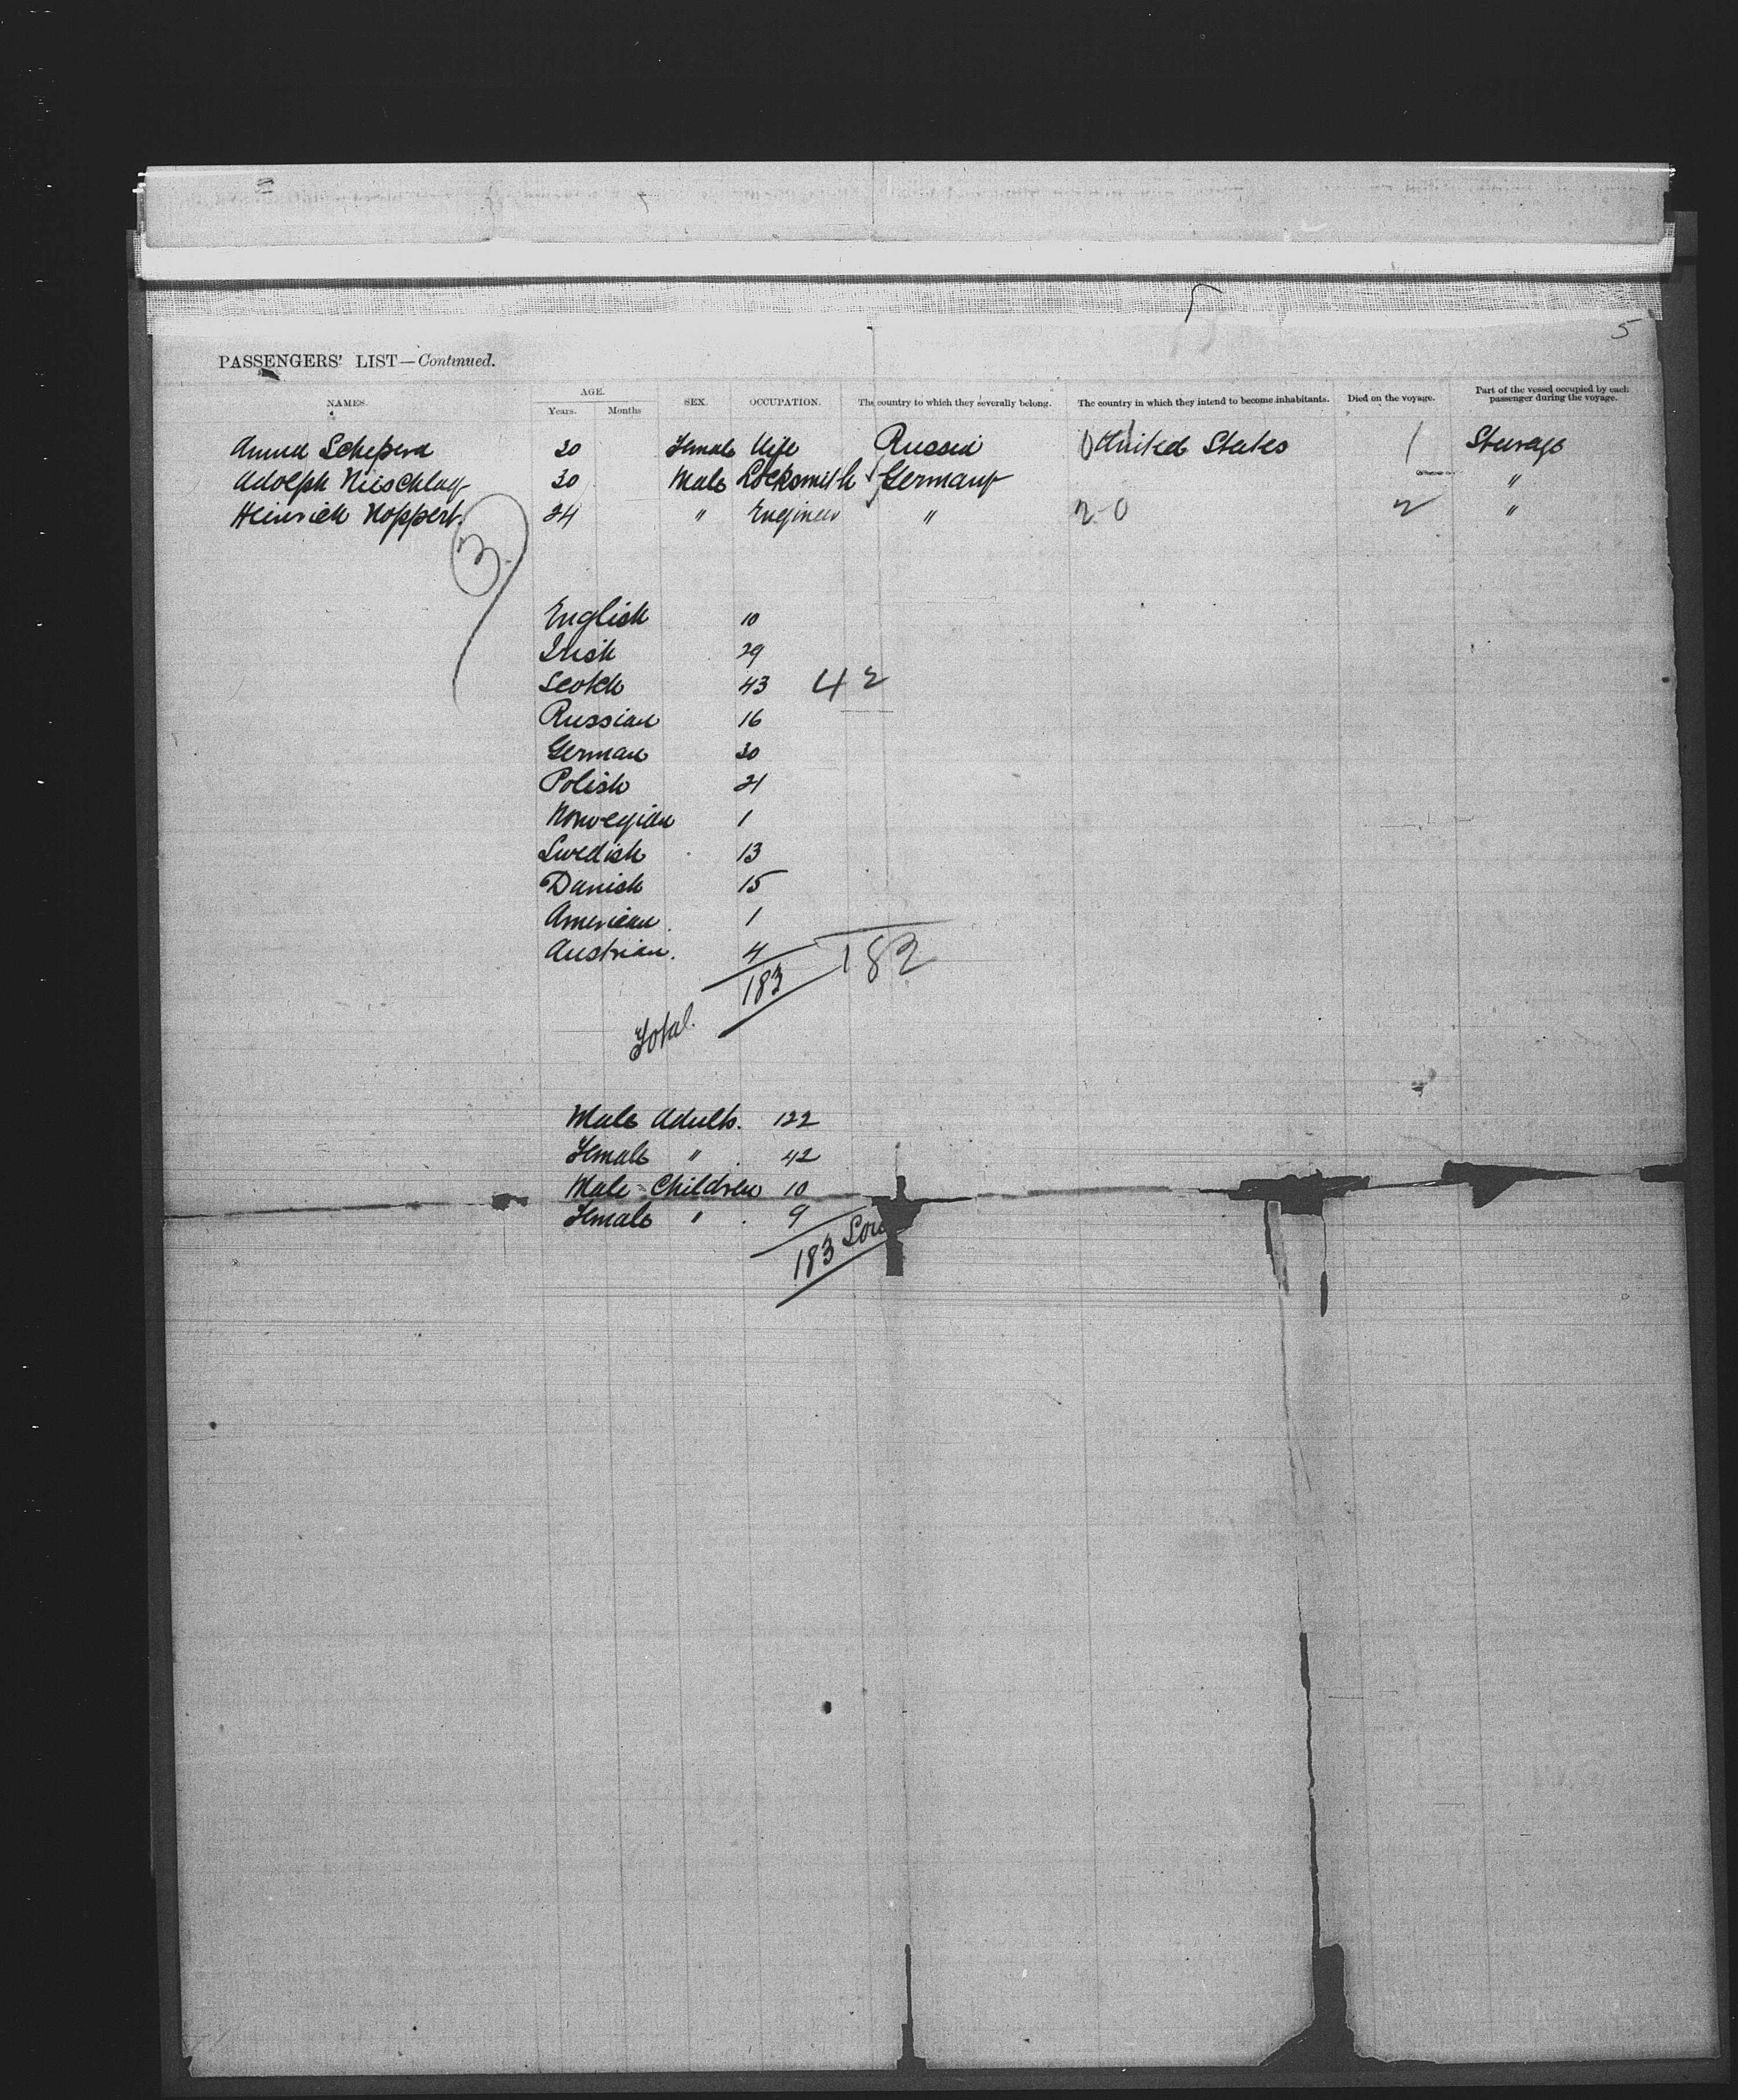 5
PASSENGERS' LIST—Continued.
NAMES. AGE. Years. Months SEX. OCCUPATION. The country to which they severally belong. The country in which they intend to become inhabitants. Died on the voyage. Part of the vessel occupied by each passenger during the voyage.
30 Female Wife Russia United States 1 Steerage
Adolph 30 Male Locksmith Germany "
Heinrich Noppert. 24 " Engineer " 2 0 2 "
3
English 10
Irish 29
Scotch 43 42
Russian 16
German 30
Polish 21
Norwegian 1
Swedish 13
Danish 15
American. 1
Austrian. 4
Total. 183 182
Male Adults. 122
Female " 42
Male Children 10
Female " 9
183